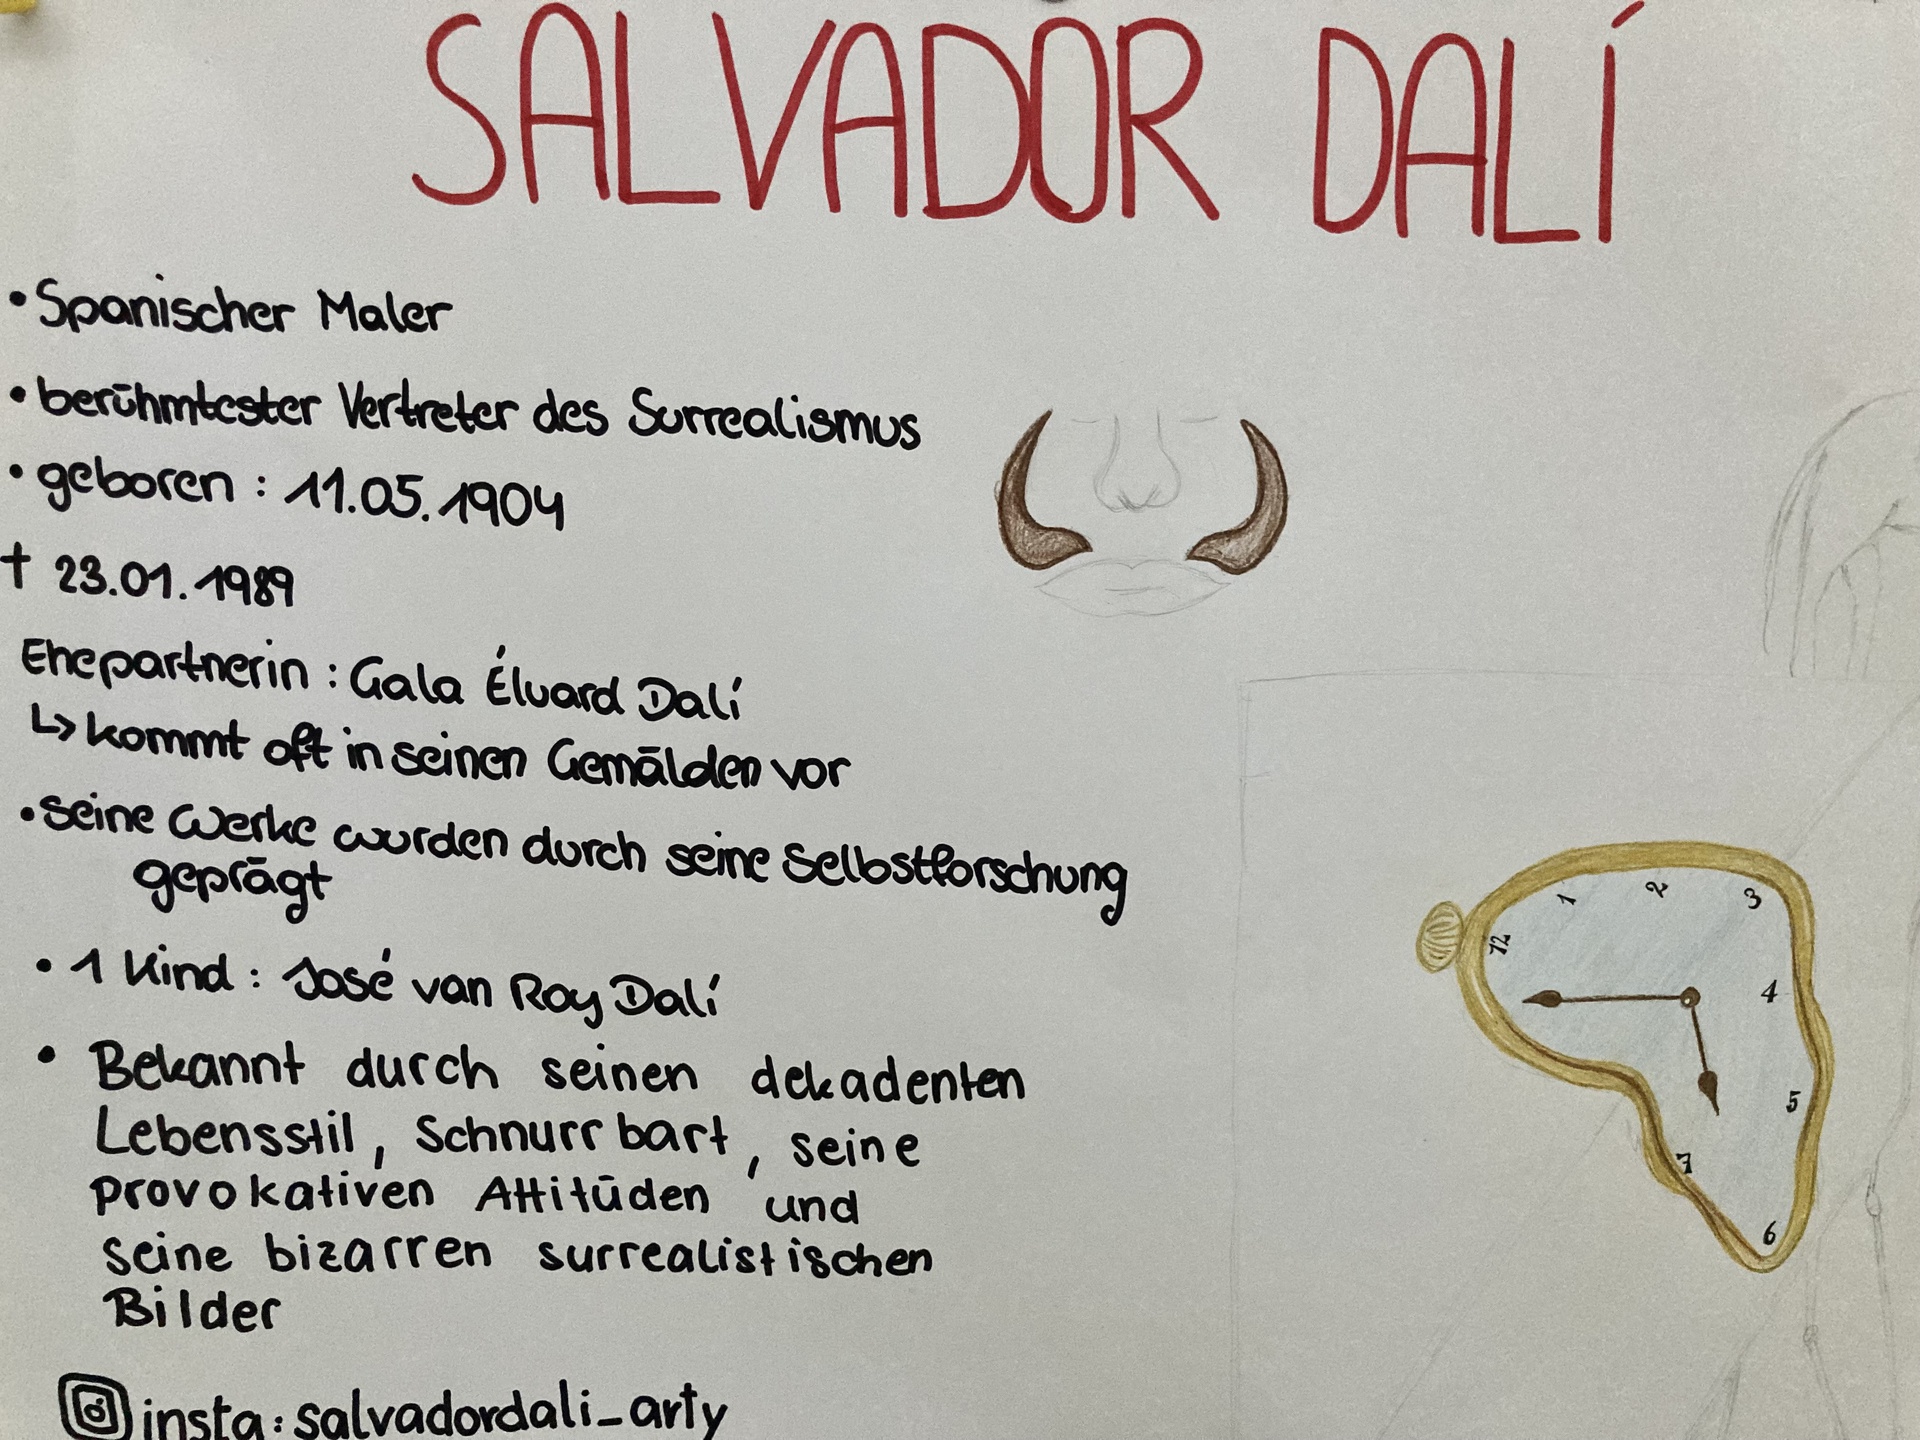 SALVADOR DALÍ
• Spanischer Maler
• berühmtester Vertreter des Surrealismus
• geboren : 11.05.1904
† 23.01.1989
Ehepartnerin : Gala Éluard Dalí
↳ kommt oft in seinen Gemälden vor
• seine Werke wurden durch seine Selbstforschung
geprägt
• 1 Kind : José van Roy Dalí
• Bekannt durch seinen dekadenten
Lebensstil, Schnurrbart, seine
provokativen Attitüden und
seine bizarren surrealistischen
Bilder
insta: salvadordali_arty
12 1 2 3
4
5
7
6